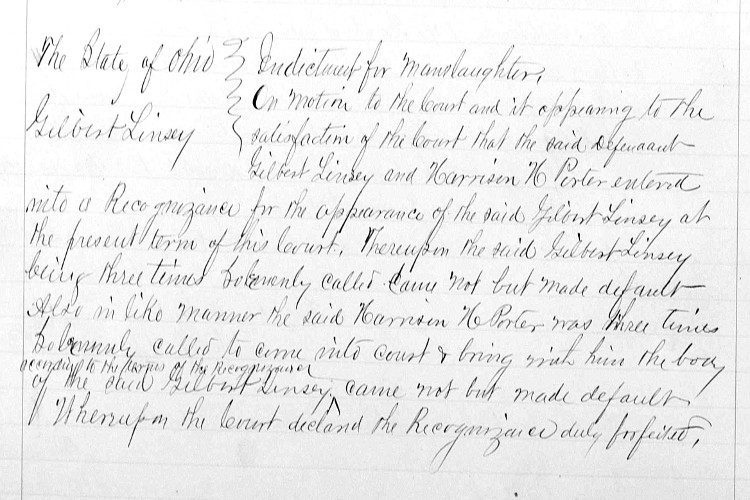 The State of Ohio
Indictment for Manslaughter.
On Motion to the Court and it appearing to the
Gilbert Linsey
satisfaction of the Court that the said Defendant
Gilbert Linsey and Harrison H Porter entered
into a Recognizance for the appearance of the said Gilbert Linsey at
the present term of this Court. Thereupon the said Gilbert Linsey
being three times Solemnly called came not but made default
Also in like manner the said Harrison H Porter was three times
Solemnly called to come into court & bring with him the body
according to the terms of the Recognizance
of the said Gilbert Linsey, came not but made default
Whereupon the Court declard the Recognizance duly forfeited,